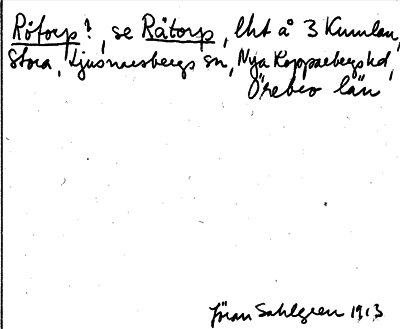 Röforp?, se Råtorp, lht å 3 Kumlan,
Stora, Ljusnarsbergs sn, Nya Kopparbergs hd,
Örebro län
Jöran Sahlgren 1913